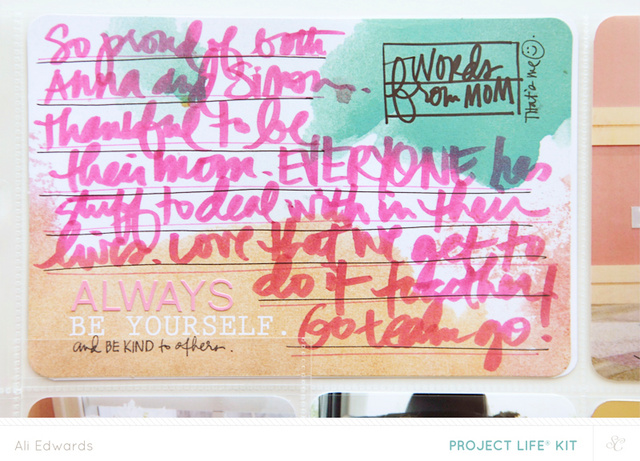 So proud of both
Anna and Simon.
thankful to be
their mom. EVERYONE has
stuff to deal with in their
lives. Love that we get to
do it together!
Go team go.
words
from MOM
That's me
ALWAYS
BE YOURSELF.
and BE KIND to others.
Ali Edwards
PROJECT LIFE® KIT
SC